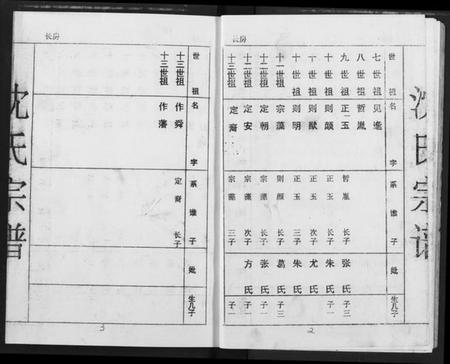 长房
沈氏宗谱
世 祖 名 字 系谁子 妣 生几子
七世祖 见逵
八世祖 哲胤
九世祖 正玉 哲胤 长子 张氏 子三
十世祖 则颜 正玉 长子 朱氏 子一
十世祖 则猷 正玉 次子 尤氏 子一
十世祖 则明 正玉 三子 朱氏
十一世祖 宗藻 则颜 长子 葛氏 子三
十二世祖 定朝 宗藻 长子 张氏 子一
十二世祖 定安 宗藻 次子 方氏 子一
十二世祖 定裔 宗藻 三子
2
长房
世 祖 名 字 系谁子 妣 生几子
十三世祖 作舜 定裔 长子
十三世祖 作藩
沈氏宗谱
3